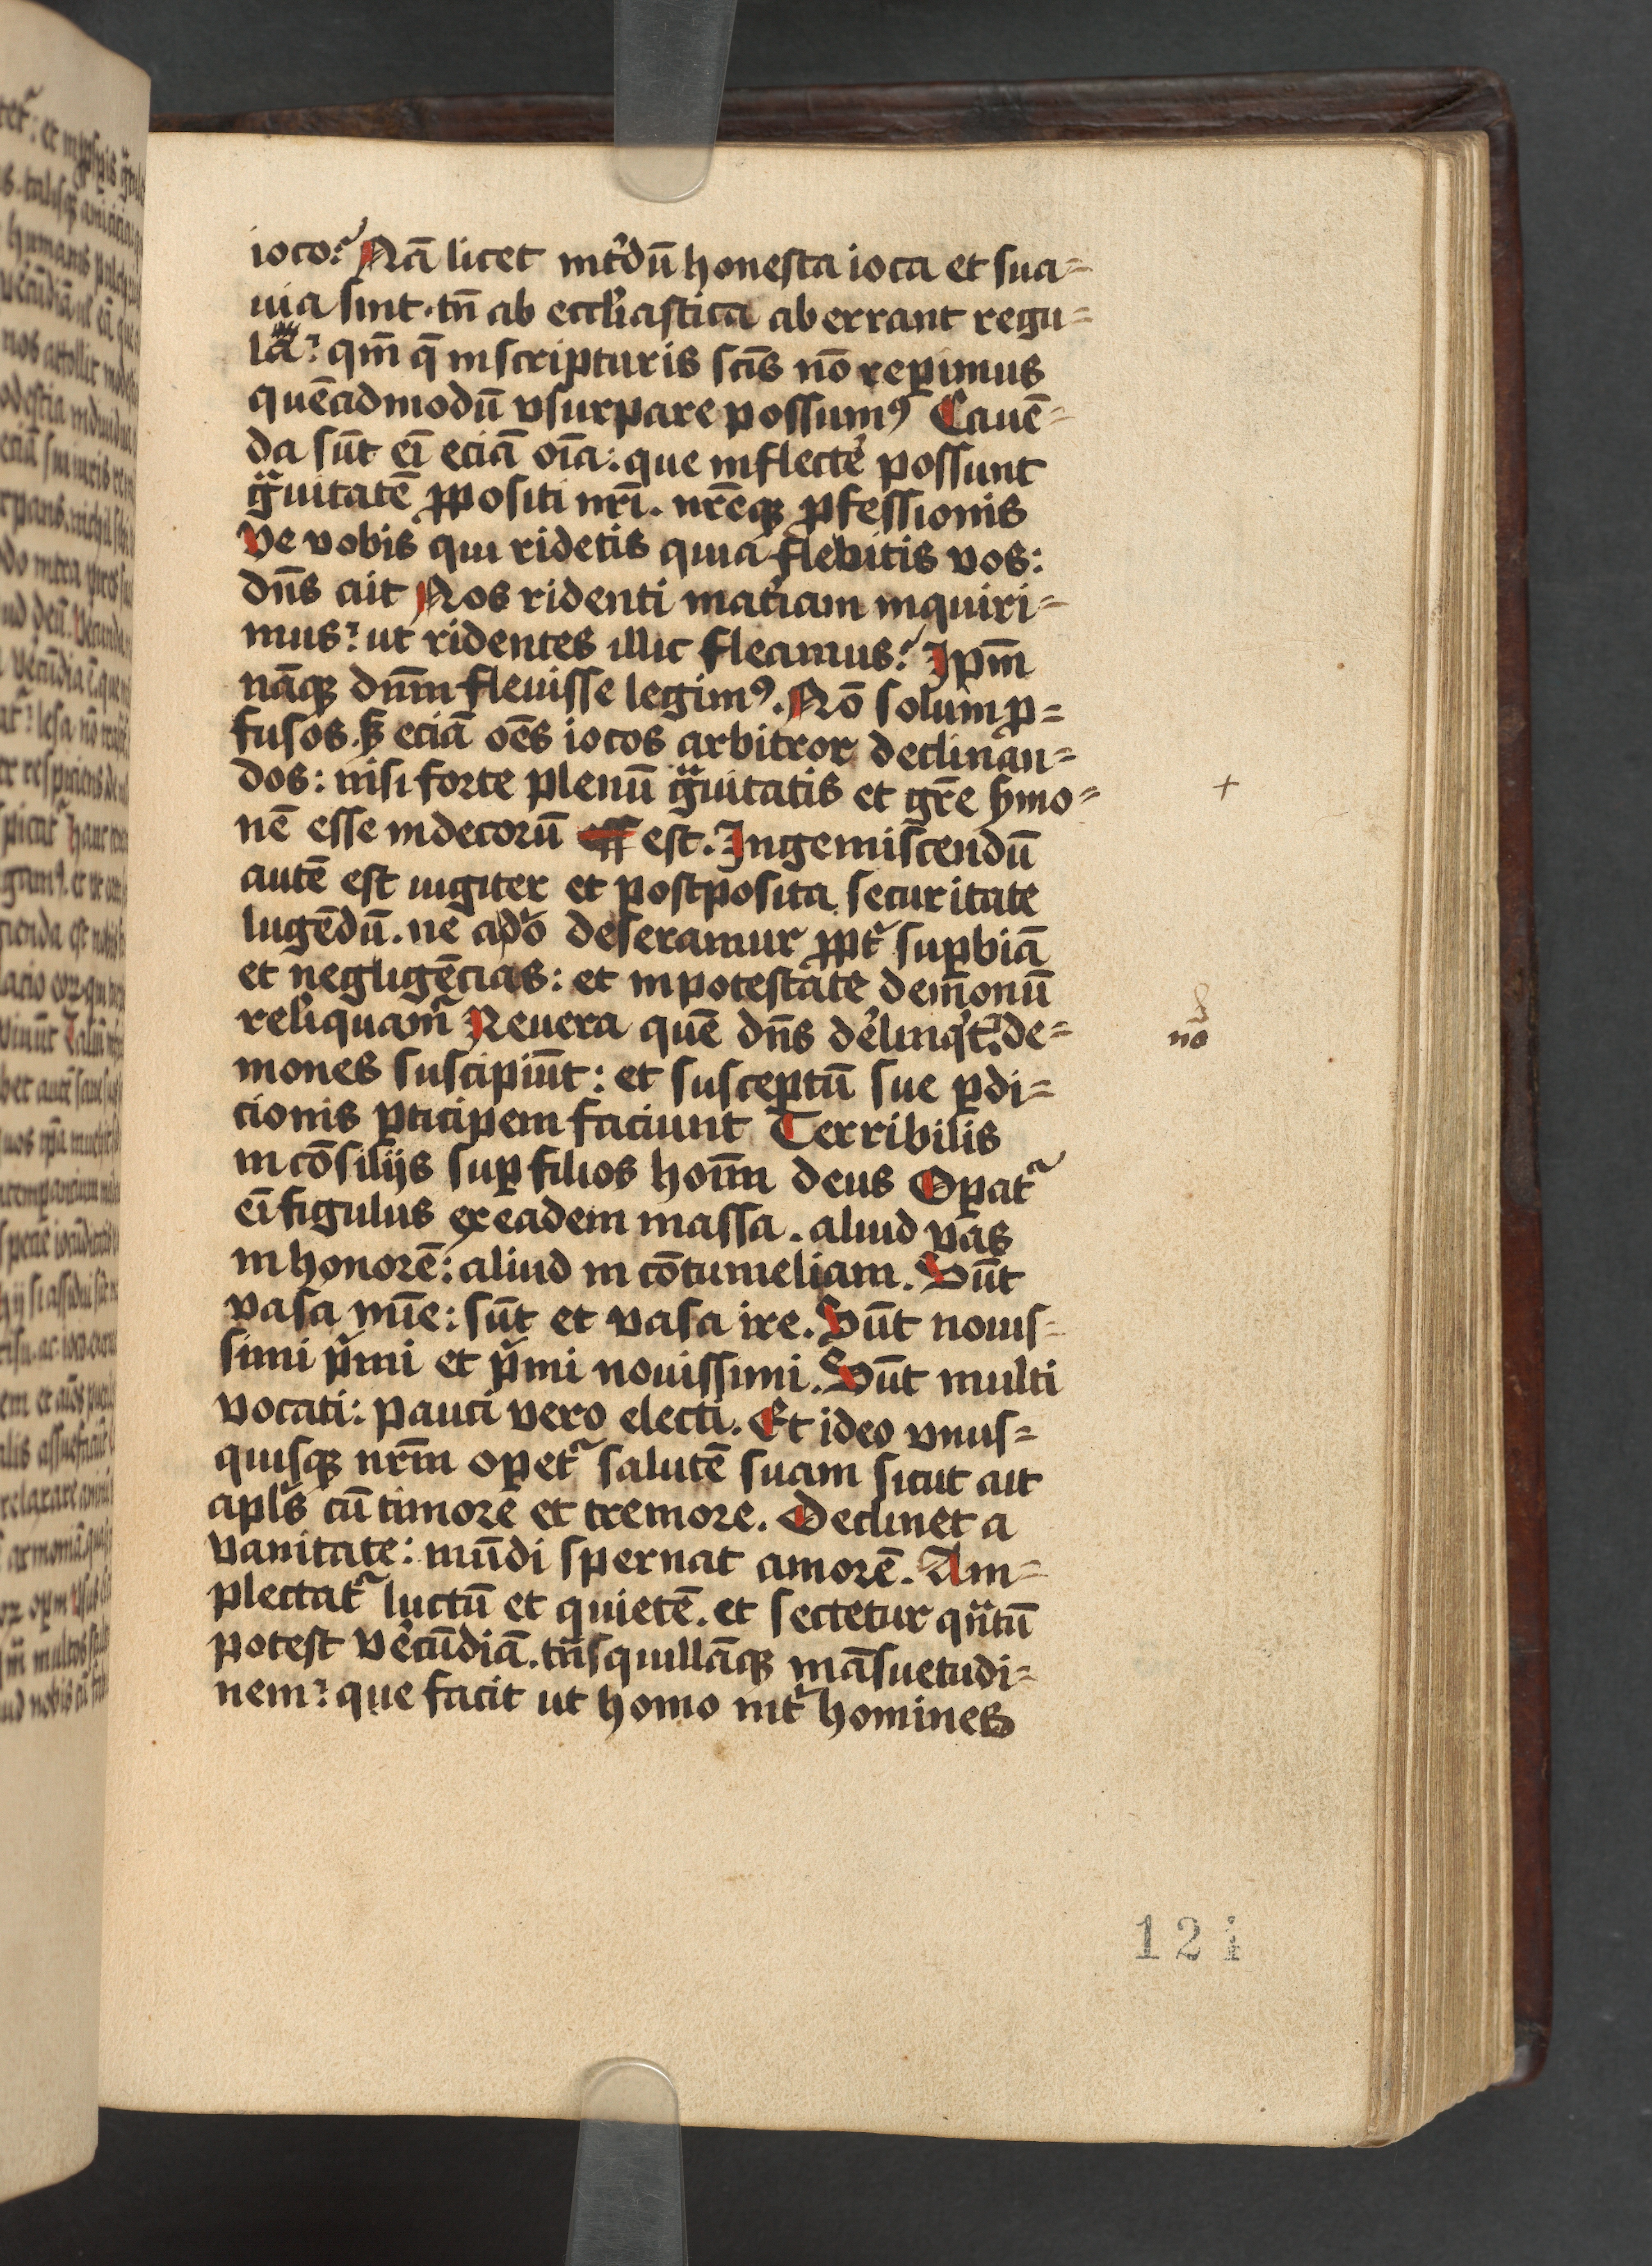 ioco.ᷣ Nā licet int̾dū honesta ioca et sua=
uia sint. tn̄ ab eccl̾iastica aberrant regu=
la? qm̄ q̄ in scripturis sc̄is nō reꝑimus
quēadmodū vsurpare possumꝰ Cauē=
da sūt ei̅ eciā oīa: que inflect̾e possunt
gᷓuitatē ꝓpositi nr̄i. nr̄eqꝫ ꝓfessionis
Ve vobis qui ridetis quia flebitis vos:
dn̄s ait Nos ridenti mat̾iam inquiri=
mus? ut ridentes illic fleamus? Ipm̄
nāqꝫ dnm̄ fleuisse legimꝰ. Nō solum ꝓ=
fusos. sꝫ eciā oēs iocos arbitror declinan=
dos: nisi forte plenū gᷓuitatis et gr̄e s̾mo=
nē esse indecorū est. Ingemiscendū
autē est iugiter et postposita securitate
lugēdū. ne a do̾ deseramur ꝓpt̾ suꝑbiā
et negligēcias: et in potestate demonū
reliquamᷣ Reuera quē dn̄s d̾elinqͥt: de=
mones suscipiūt: et susceptū sue ꝑdi=
cionis ꝑticipem faciunt Terribilis
in cōsilijs suꝑ filios hoīm deus Oꝑatᷣ
ei̅ figulus ex eadem massa. aliud vas
in honorē: aliud in cōtumeliam. Sūt
vasa mīe: sūt et vasa ire. Sūt nouis=
simi pͥmi et pͥmi nouissimi. Sūt multi
vocati: pauci vero electi. Et ideo vnus=
quisqꝫ nrm̄ oꝑetᷣ salutē suam sicut ait
apl̾s cū timore et tremore. Declinet a
vanitate: mūdi spernat amorē. Am=
plectatᷣ luctū et quietē. et sectetur qᷓntū
potest v̾ecūdiā. tᷓnsquillāqꝫ māsuetudi=
nem? que facit ut homo int̾ homines
+
no
121